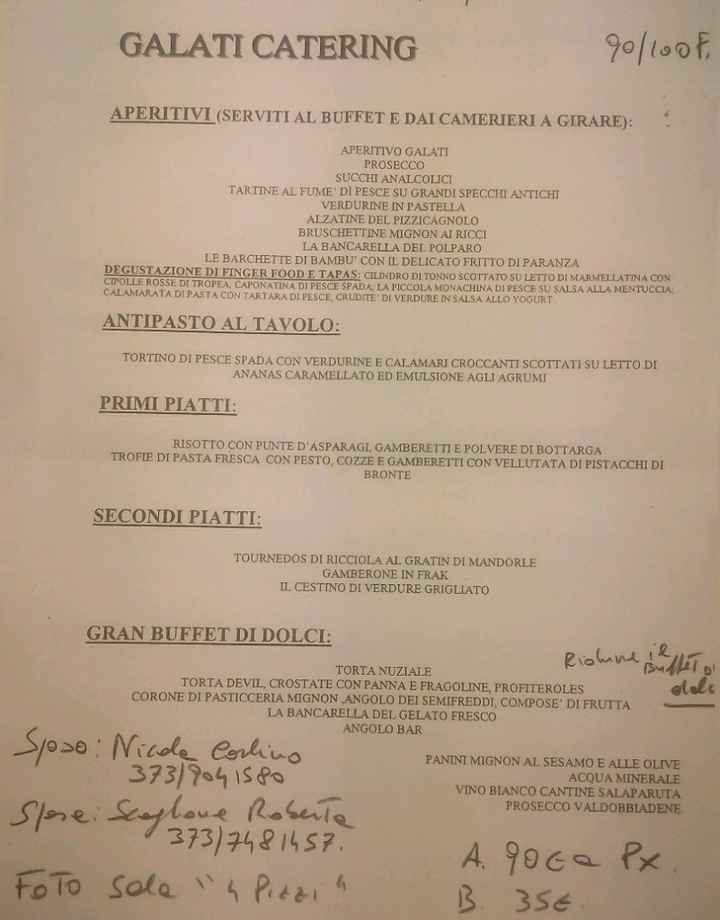 GALATI CATERING
90/100 F.
APERITIVI (SERVITI AL BUFFET E DAI CAMERIERI A GIRARE):
APERITIVO GALATI
PROSECCO
SUCCHI ANALCOLICI
TARTINE AL FUME' DÌ PESCE SU GRANDI SPECCHI ANTICHI
VERDURINE IN PASTELLA
ALZATINE DEL PIZZICAGNOLO
BRUSCHETTINE MIGNON AI RICCI
LA BANCARELLA DEL POLPARO
LE BARCHETTE DI BAMBU' CON IL DELICATO FRITTO DI PARANZA
DEGUSTAZIONE DI FINGER FOOD E TAPAS: CILINDRO DI TONNO SCOTTATO SU LETTO DI MARMELLATINA CON
CIPOLLE ROSSE DI TROPEA, CAPONATINA DI PESCE SPADA; LA PICCOLA MONACHINA DI PESCE SU SALSA ALLA MENTUCCIA;
CALAMARATA DI PASTA CON TARTARA DI PESCE, CRUDITE' DI VERDURE IN SALSA ALLO YOGURT
ANTIPASTO AL TAVOLO:
TORTINO DI PESCE SPADA CON VERDURINE E CALAMARI CROCCANTI SCOTTATI SU LETTO DI
ANANAS CARAMELLATO ED EMULSIONE AGLI AGRUMI
PRIMI PIATTI:
RISOTTO CON PUNTE D'ASPARAGI, GAMBERETTI E POLVERE DI BOTTARGA
TROFIE DI PASTA FRESCA CON PESTO, COZZE E GAMBERETTI CON VELLUTATA DI PISTACCHI DI
BRONTE
SECONDI PIATTI:
TOURNEDOS DI RICCIOLA AL GRATIN DI MANDORLE
GAMBERONE IN FRAK
IL CESTINO DI VERDURE GRIGLIATO
GRAN BUFFET DI DOLCI:
il
Buffet di
dolci
TORTA NUZIALE
TORTA DEVIL, CROSTATE CON PANNA E FRAGOLINE, PROFITEROLES
CORONE DI PASTICCERIA MIGNON ,ANGOLO DEI SEMIFREDDI, COMPOSE' DI FRUTTA
LA BANCARELLA DEL GELATO FRESCO
ANGOLO BAR
PANINI MIGNON AL SESAMO E ALLE OLIVE
ACQUA MINERALE
VINO BIANCO CANTINE SALAPARUTA
PROSECCO VALDOBBIADENE
Sposo: Nicola
373/9041580
Sposa: Roberta
373/7481457.
FOTO Sala " 4 Pizzi "
A. 90€ a Px.
B. 35€.